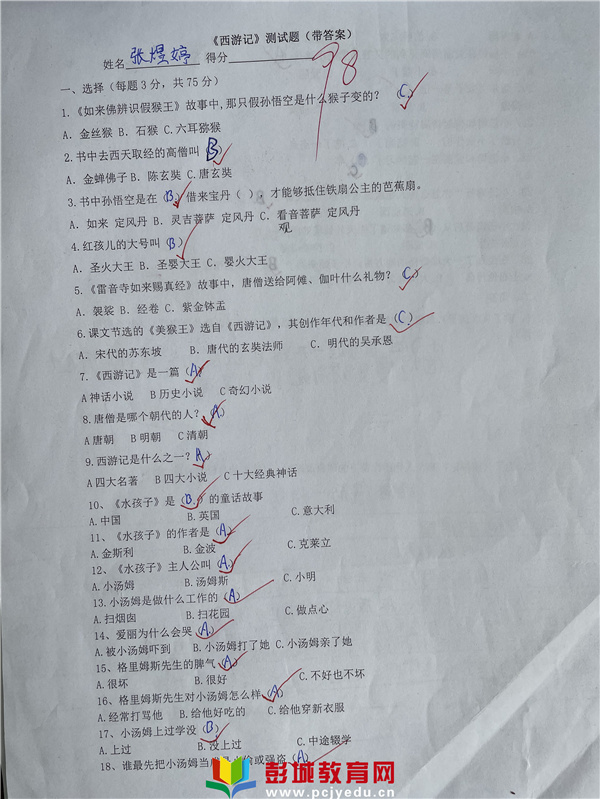 《西游记》测试题（带答案）
姓名 张煜婷 得分 98
一、选择（每题3分，共75分）
1.《如来佛辨识假猴王》故事中,那只假孙悟空是什么猴子变的？（C）
A. 金丝猴 B. 石猴 C.六耳猕猴
2.书中去西天取经的高僧叫（B）
A. 金蝉佛子 B. 陈玄奘 C.唐玄奘
3.书中孙悟空是在（B）借来宝丹（ ）才能够抵住铁扇公主的芭蕉扇。
A. 如来 定风丹 B. 灵吉菩萨 定风丹 C. 看音菩萨 定风丹
观
4.红孩儿的大号叫（B）
A. 圣火大王 B. 圣婴大王 C. 婴火大王
5.《雷音寺如来赐真经》故事中，唐僧送给阿傩、伽叶什么礼物？（C）
A. 袈裟 B. 经卷 C. 紫金钵盂
6.课文节选的《美猴王》选自《西游记》，其创作年代和作者是（C）
A. 宋代的苏东坡 B. 唐代的玄奘法师 C. 明代的吴承恩
7.《西游记》是一篇（A）
A 神话小说 B 历史小说 C 奇幻小说
8.唐僧是哪个朝代的人？（A）
A 唐朝 B 明朝 C 清朝
9.西游记是什么之一？（A）
A 四大名著 B 四大小说 C 十大经典神话
10、《水孩子》是（B）的童话故事
A.中国 B.英国 C.意大利
11、《水孩子》的作者是（A）
A.金斯利 B.金波 C.克莱立
12、《水孩子》主人公叫（A）
A.小汤姆 B.汤姆斯 C.小明
13.小汤姆是做什么工作的（A）
A.扫烟囱 B.扫花园 C.做点心
14、爱丽为什么会哭（A）
A.被小汤姆吓到 B.小汤姆打了她 C.小汤姆亲了她
15、格里姆斯先生的脾气（A）
A.很坏 B.很好 C.不好也不坏
16、格里姆斯先生对小汤姆怎么样（A）
A.经常打骂他 B.给他好吃的 C.给他穿新衣服
17、小汤姆上过学没（B）
A.上过 B.没上过 C.中途辍学
18、谁最先把小汤姆当成小偷或强盗（A）
彭城教育网
www.pcjyedu.cn